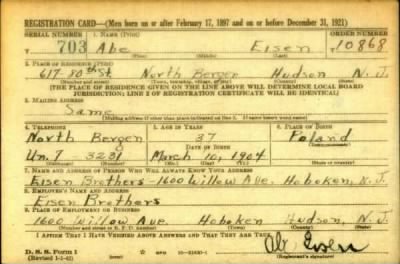 REGISTRATION CARD—(Men born on or after February 17, 1897 and on or before December 31, 1921)
SERIAL NUMBER 1. NAME (Print) ORDER NUMBER
703 Abe Eisen 10868
(First) (Middle) (Last)
2. PLACE OF RESIDENCE (Print)
617-80th St North Bergen Hudson N. J.
(Number and street) (Town, township, village, or city) (County) (State)
[THE PLACE OF RESIDENCE GIVEN ON THE LINE ABOVE WILL DETERMINE LOCAL BOARD
JURISDICTION; LINE 2 OF REGISTRATION CERTIFICATE WILL BE IDENTICAL]
3. MAILING ADDRESS
Same
[Mailing address if other than place indicated on line 2. If same insert word same]
4. TELEPHONE 5. AGE IN YEARS 6. PLACE OF BIRTH
North Bergen 37 Poland
DATE OF BIRTH (Town or county)
Un. 7 3231 March 10, 1904
(Exchange) (Number) (Mo.) (Day) (Yr.) (State or country)
7. NAME AND ADDRESS OF PERSON WHO WILL ALWAYS KNOW YOUR ADDRESS
Eisen Brothers - 1600 Willow Ave. Hoboken, N. J.
8. EMPLOYER'S NAME AND ADDRESS
Eisen Brothers
9. PLACE OF EMPLOYMENT OR BUSINESS
1600 Willow Ave Hoboken Hudson, N. J.
(Number and street or R. F. D. number) (Town) (County) (State)
I AFFIRM THAT I HAVE VERIFIED ABOVE ANSWERS AND THAT THEY ARE TRUE.
D. S. S. Form 1 Abe Eisen
(Revised 1-1-42) (over) 16—21630-1 (Registrant's signature)